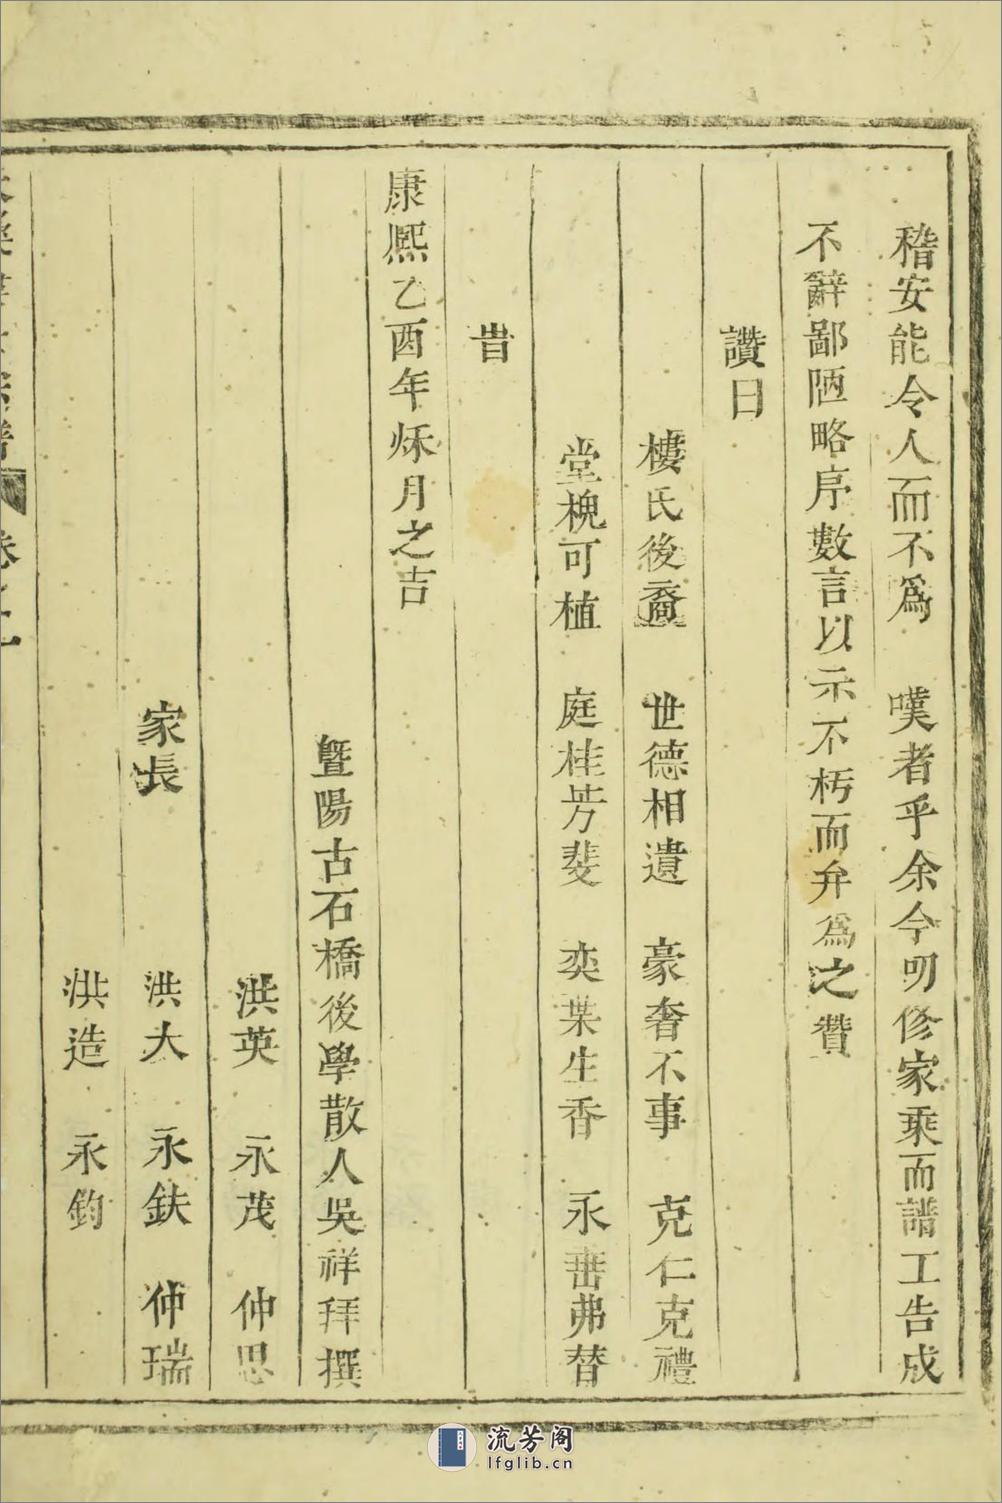 稽安能令人而不為　嘆者乎余今叨修家乘而譜工告成
不辭鄙陋略序數言以示不朽而弁為之贊
讚曰
樓氏後裔　世德相遺　豪奢不事　克仁克禮
堂槐可植　庭桂芳斐　奕葉生香　永垂弗替
旹
康熙乙酉年烌月之吉
暨陽古石橋後學散人吳祥拜撰
洪英　永茂　仲思
家長　洪大　永鈇　仲瑞
洪造　永鈞
宗譜　卷之一
流芳阁
lfglib.cn